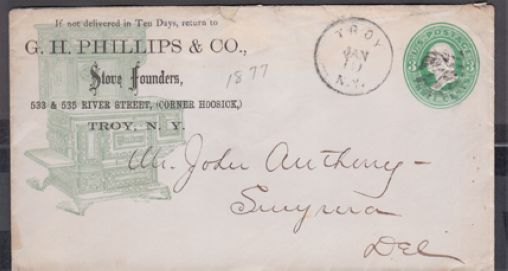 If not delivered in Ten Days, return to
G. H. PHILLIPS & CO.,
Stove Founders,
533 & 535 RIVER STREET, (CORNER HOOSICK,)
TROY, N. Y.
1877
TROY
JAN
10
N.Y.
U.S. POSTAGE
THREE CENTS
Mr. John Anthony –
Smyrna
Del